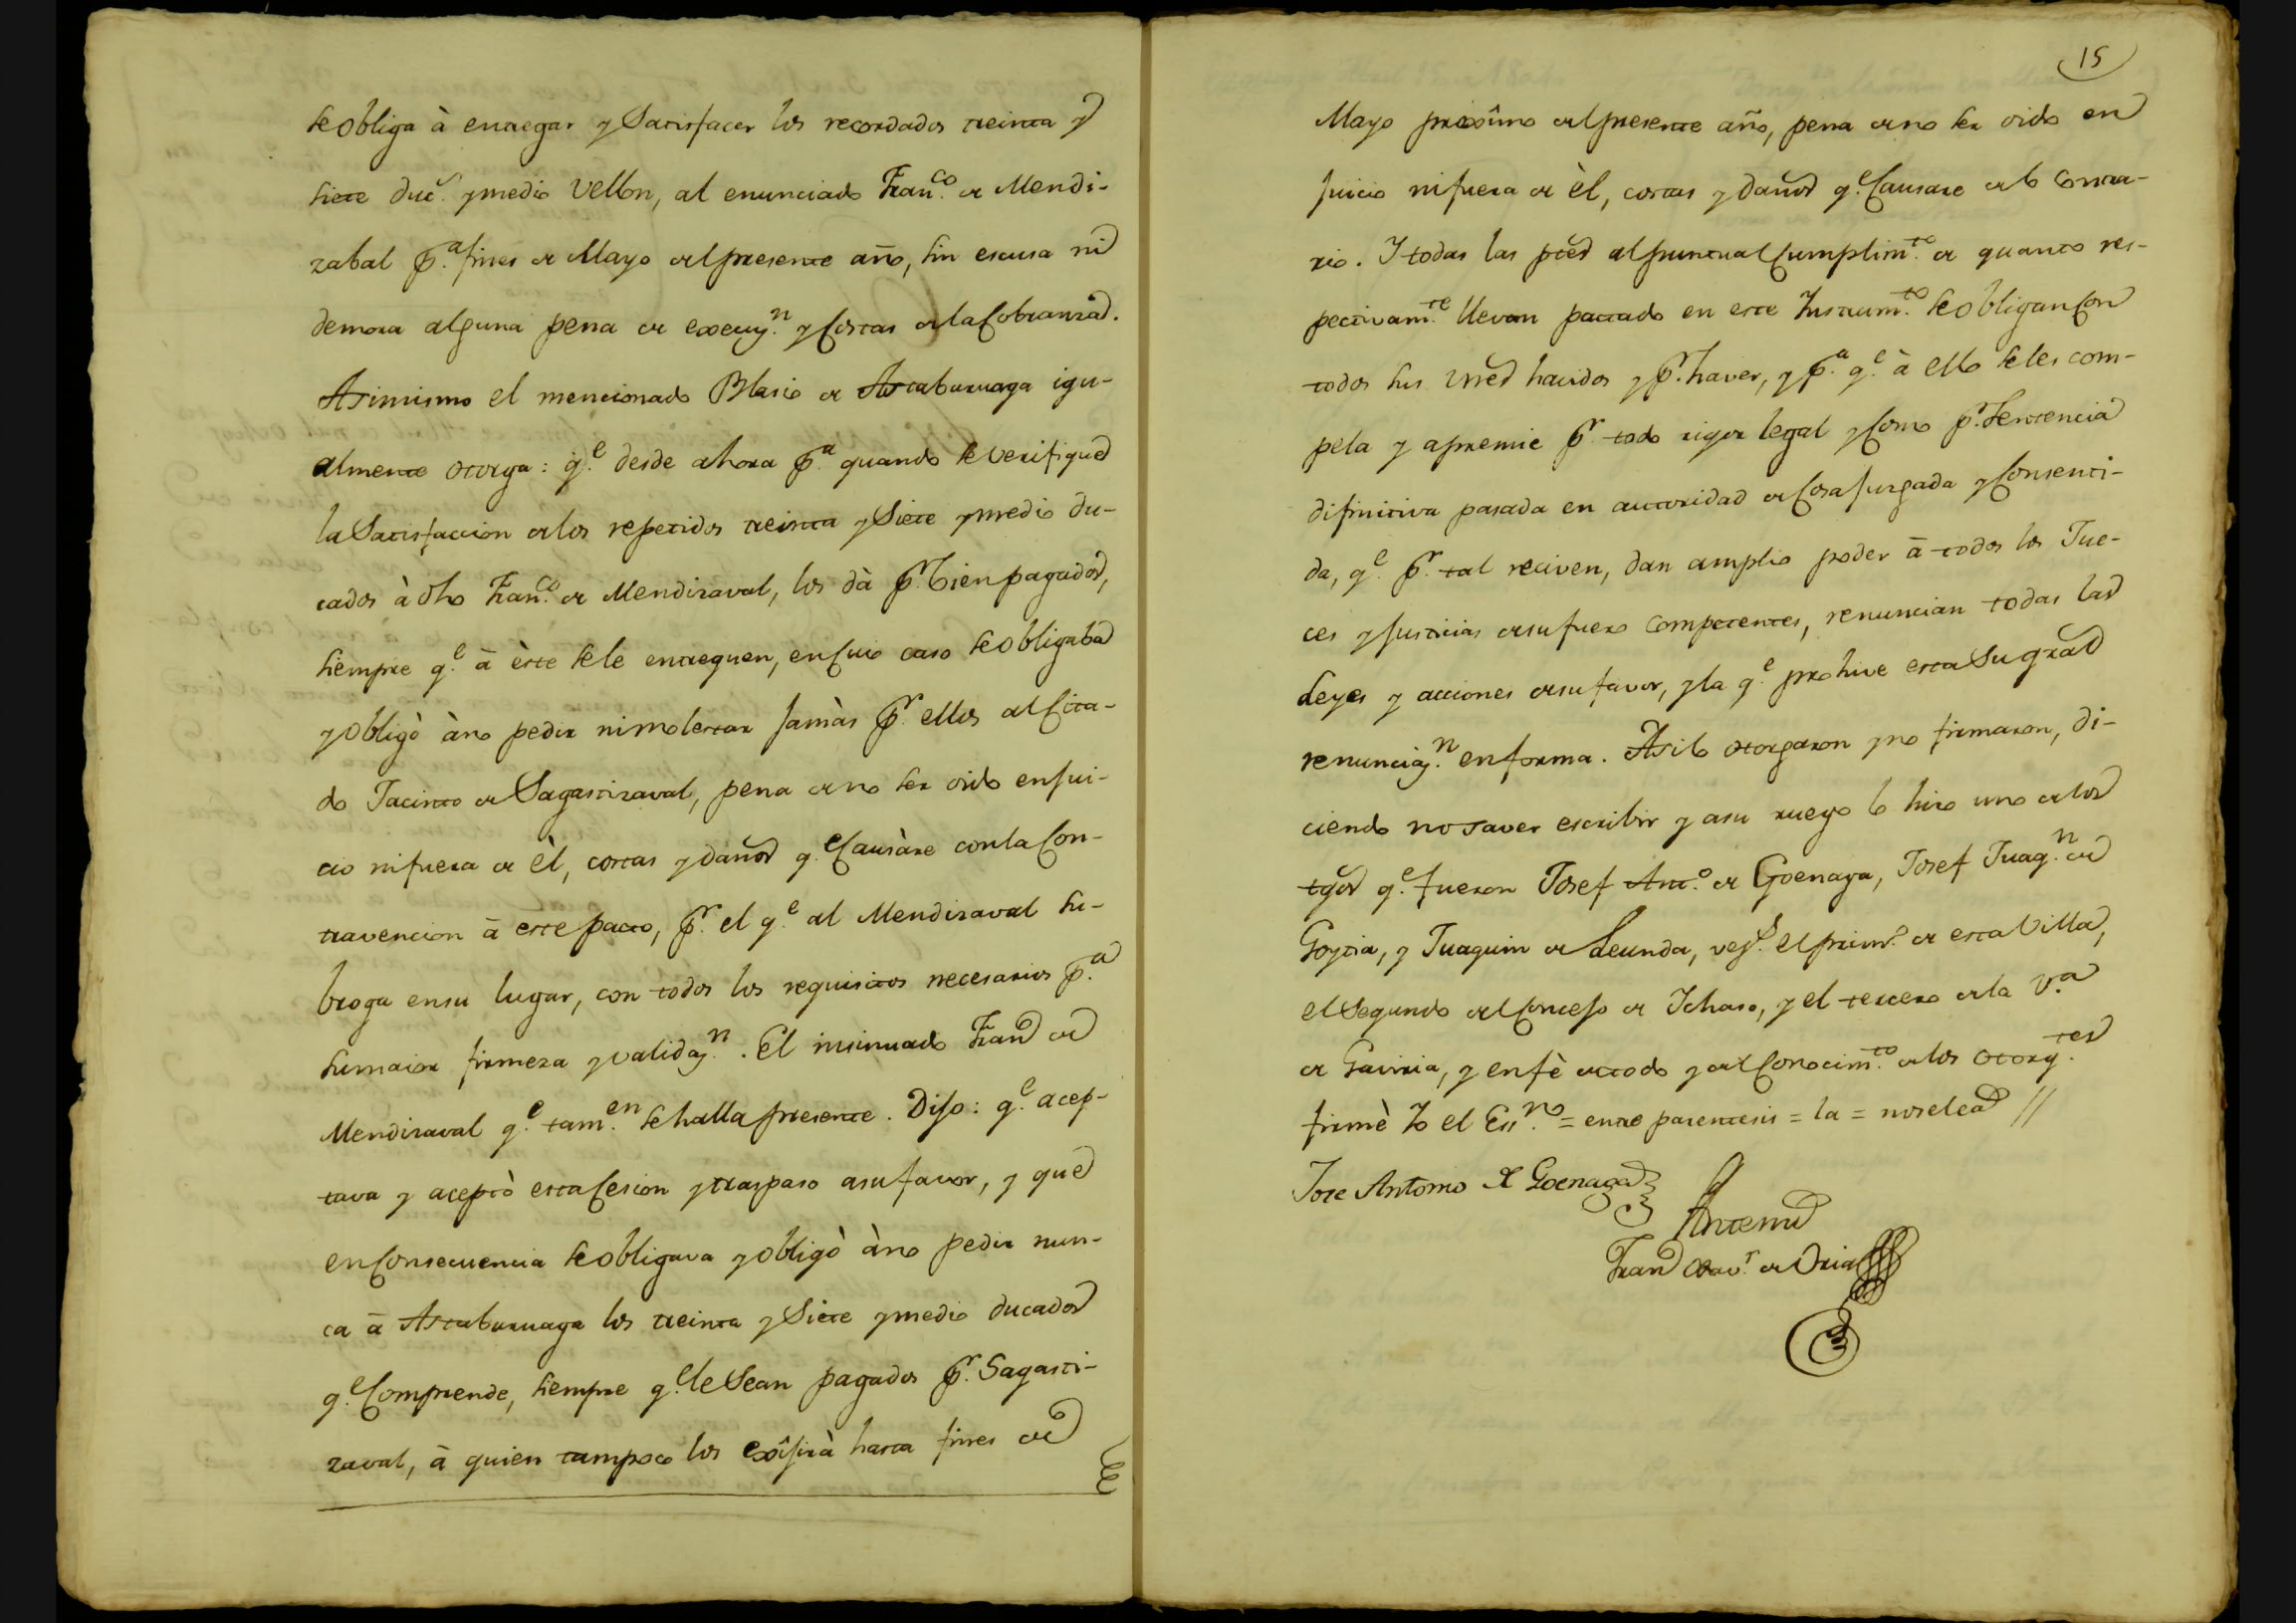 se obliga à entregar y Satisfacer los recordados treinta y
siete duc.s y medio Vellon, al enunciado Fran.co de Mendi-
zabal p.a fines de Mayo del presente año, sin escusa ni
demora alguna pena de execuz.n y Costas de la Cobranza.
Asimismo el mencionado Blasio de Astaburuaga igu-
almente otorga: q.e desde ahora p.a quando se verifique
la Satisfaccion de los repetidos treinta y Siete y medio du-
cados à dho Fran.co de Mendizaval, los dà p.r bien pagados,
siempre q.e à èste se le entreguen, en Cuio caso se obligaba
y obligò à no pedir ni molestar jamàs p.r ellos al Cita-
do Jacinto de Sagastizaval, pena de no ser oido en jui-
cio ni fuera de èl, costas y daños q.e Causàre con la Con-
travencion à este pacto, p.r el q.e al Mendizaval su-
broga en su lugar, con todos los requisitos necesarios p.a
su maior firmeza y validaz.n. El insinuado Fran.co de
Mendizaval q.e tam.en se halla presente. Dijo: q.e acep-
tava y aceptò esta Cesion y traspaso a su favor, y que
en Consecuencia se obligava y obligò à no pedir nun-
ca à Astaburuaga los treinta y Siete y medio ducados
q.e Comprende, siempre q.e le Sean pagados p.r Sagasti-
zaval, à quien tampoco los exîjirà hasta fines de
15
Mayo proxîmo del presente año, pena de no ser oido en
Juicio ni fuera de èl, costas y daños q.e Causare de lo Contra-
rio. Y todas las ptes al puntual Cumplim.to de quanto res-
pectivam.te llevan pactado en este Instrum.to se obligan Con
todos sus vnes havidos y p.r haver, y p.a q.e à ello se les com-
pela y apremie p.r todo rigor legal y Como p.r Sentencia
difinitiva pasada en autoridad de Cosa Juzgada y Consenti-
da, q.e p.r tal reciven, dan amplio poder à todos los Jue-
ces y Justicias de su fuero Competentes, renuncian todas las
Leyes y acciones de su favor, y la q.e prohive esta Su gral
renunciaz.n en forma. Asi lo otorgaron y no firmaron, di-
ciendo no saver escribir y a su ruego lo hizo uno de los
tgos q.e fueron Josef Ant.o de Goenaga, Josef Juaq.n de
Goytia, y Juaquin de Leunda, vez.s el prim.o de esta Villa,
el Segundo del Concejo de Ichaso, y el tercero de la V.a
de Gaviria, y en fè de todo y del Conocim.to de los otorg.tes
firmè Yo el Ess.no = entre parentesis = la = no se lea //
Jose Antonio de Goenaga
Antemi
Fran.co Xav.r de Oria